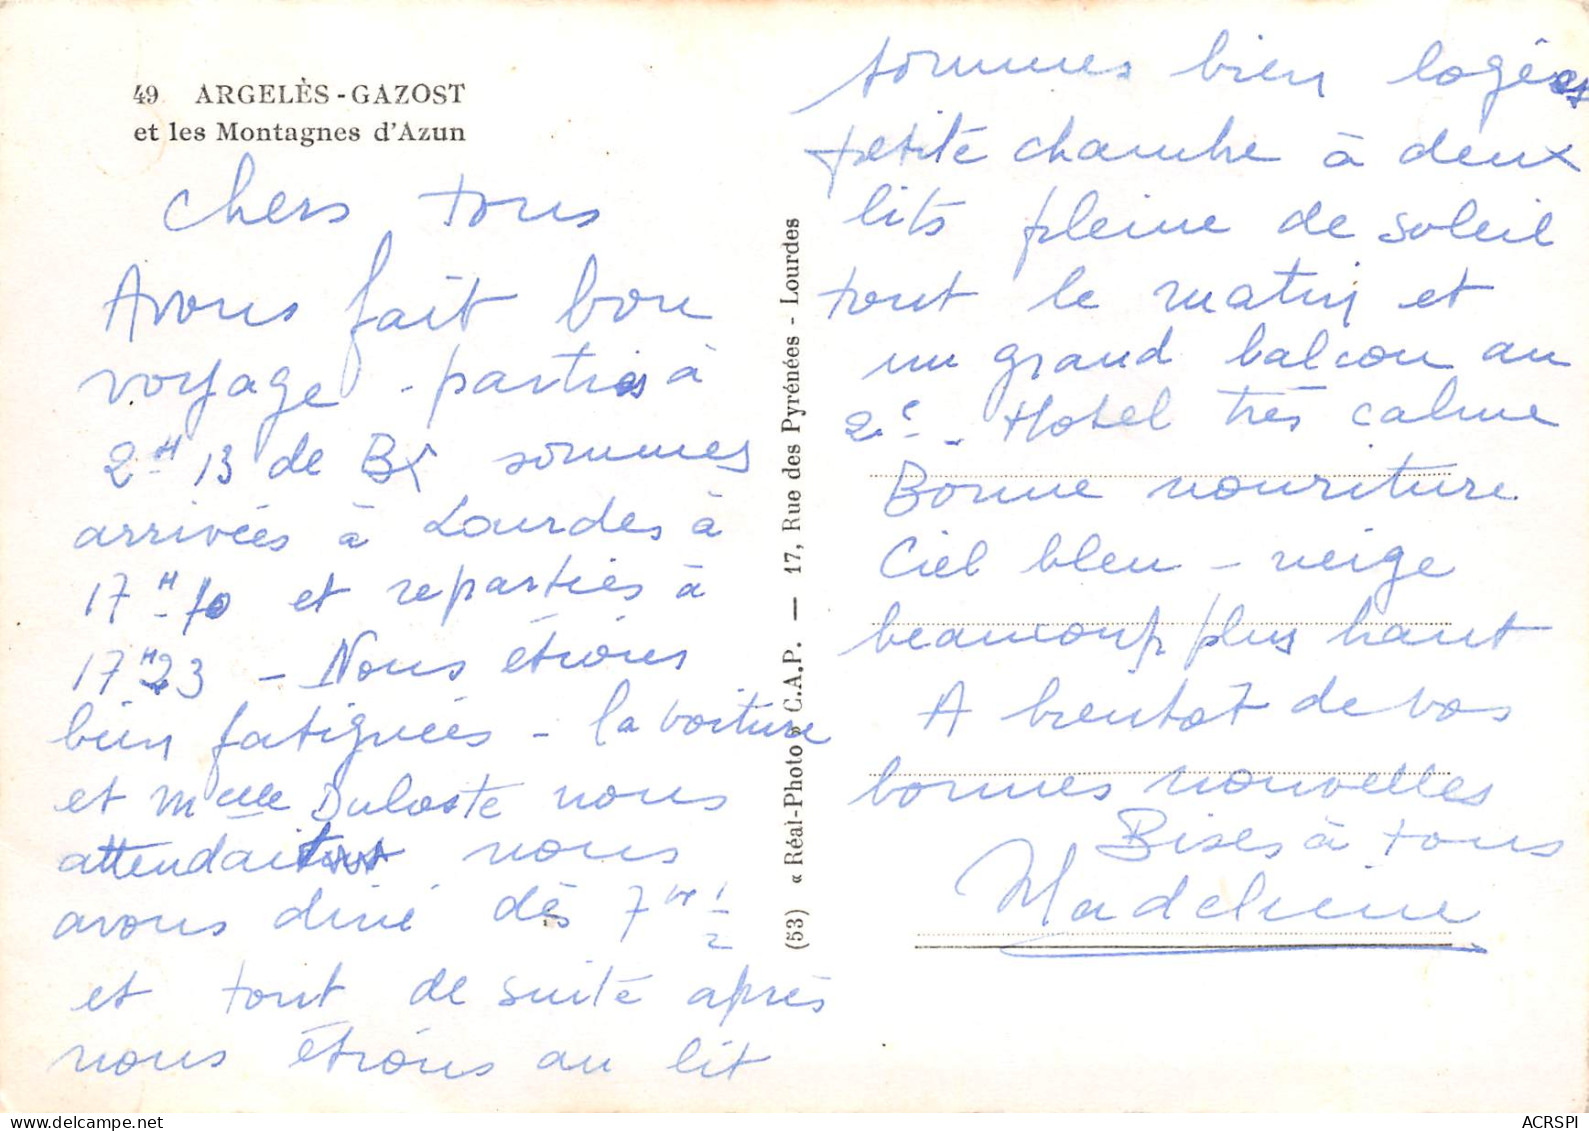 49 ARGELÈS-GAZOST
et les Montagnes d'Azun
Chers tous
Avons fait bon
voyage - parties à
2H 13 de Bx sommes
arrivées à Lourdes à
17H 10 et reparties à
17H23 - Nous étions
bien fatiguées - la voiture
et Melle Dulaste nous
attendait nous
avons diné dès 7hr 1/2
et tout de suite après
nous étions au lit
(53) « Réal-Photo » C.A.P. — 17, Rue des Pyrénées - Lourdes
sommes bien logées
petite chambre à deux
lits pleine de soleil
tout le matin et
un grand balcon au
2e - Hotel très calme
Bonne nourriture
Ciel bleu - neige
beaucoup plus haut
A bientot de vos
bonnes nouvelles
Bises à tous
Madeleine
ACRSPI